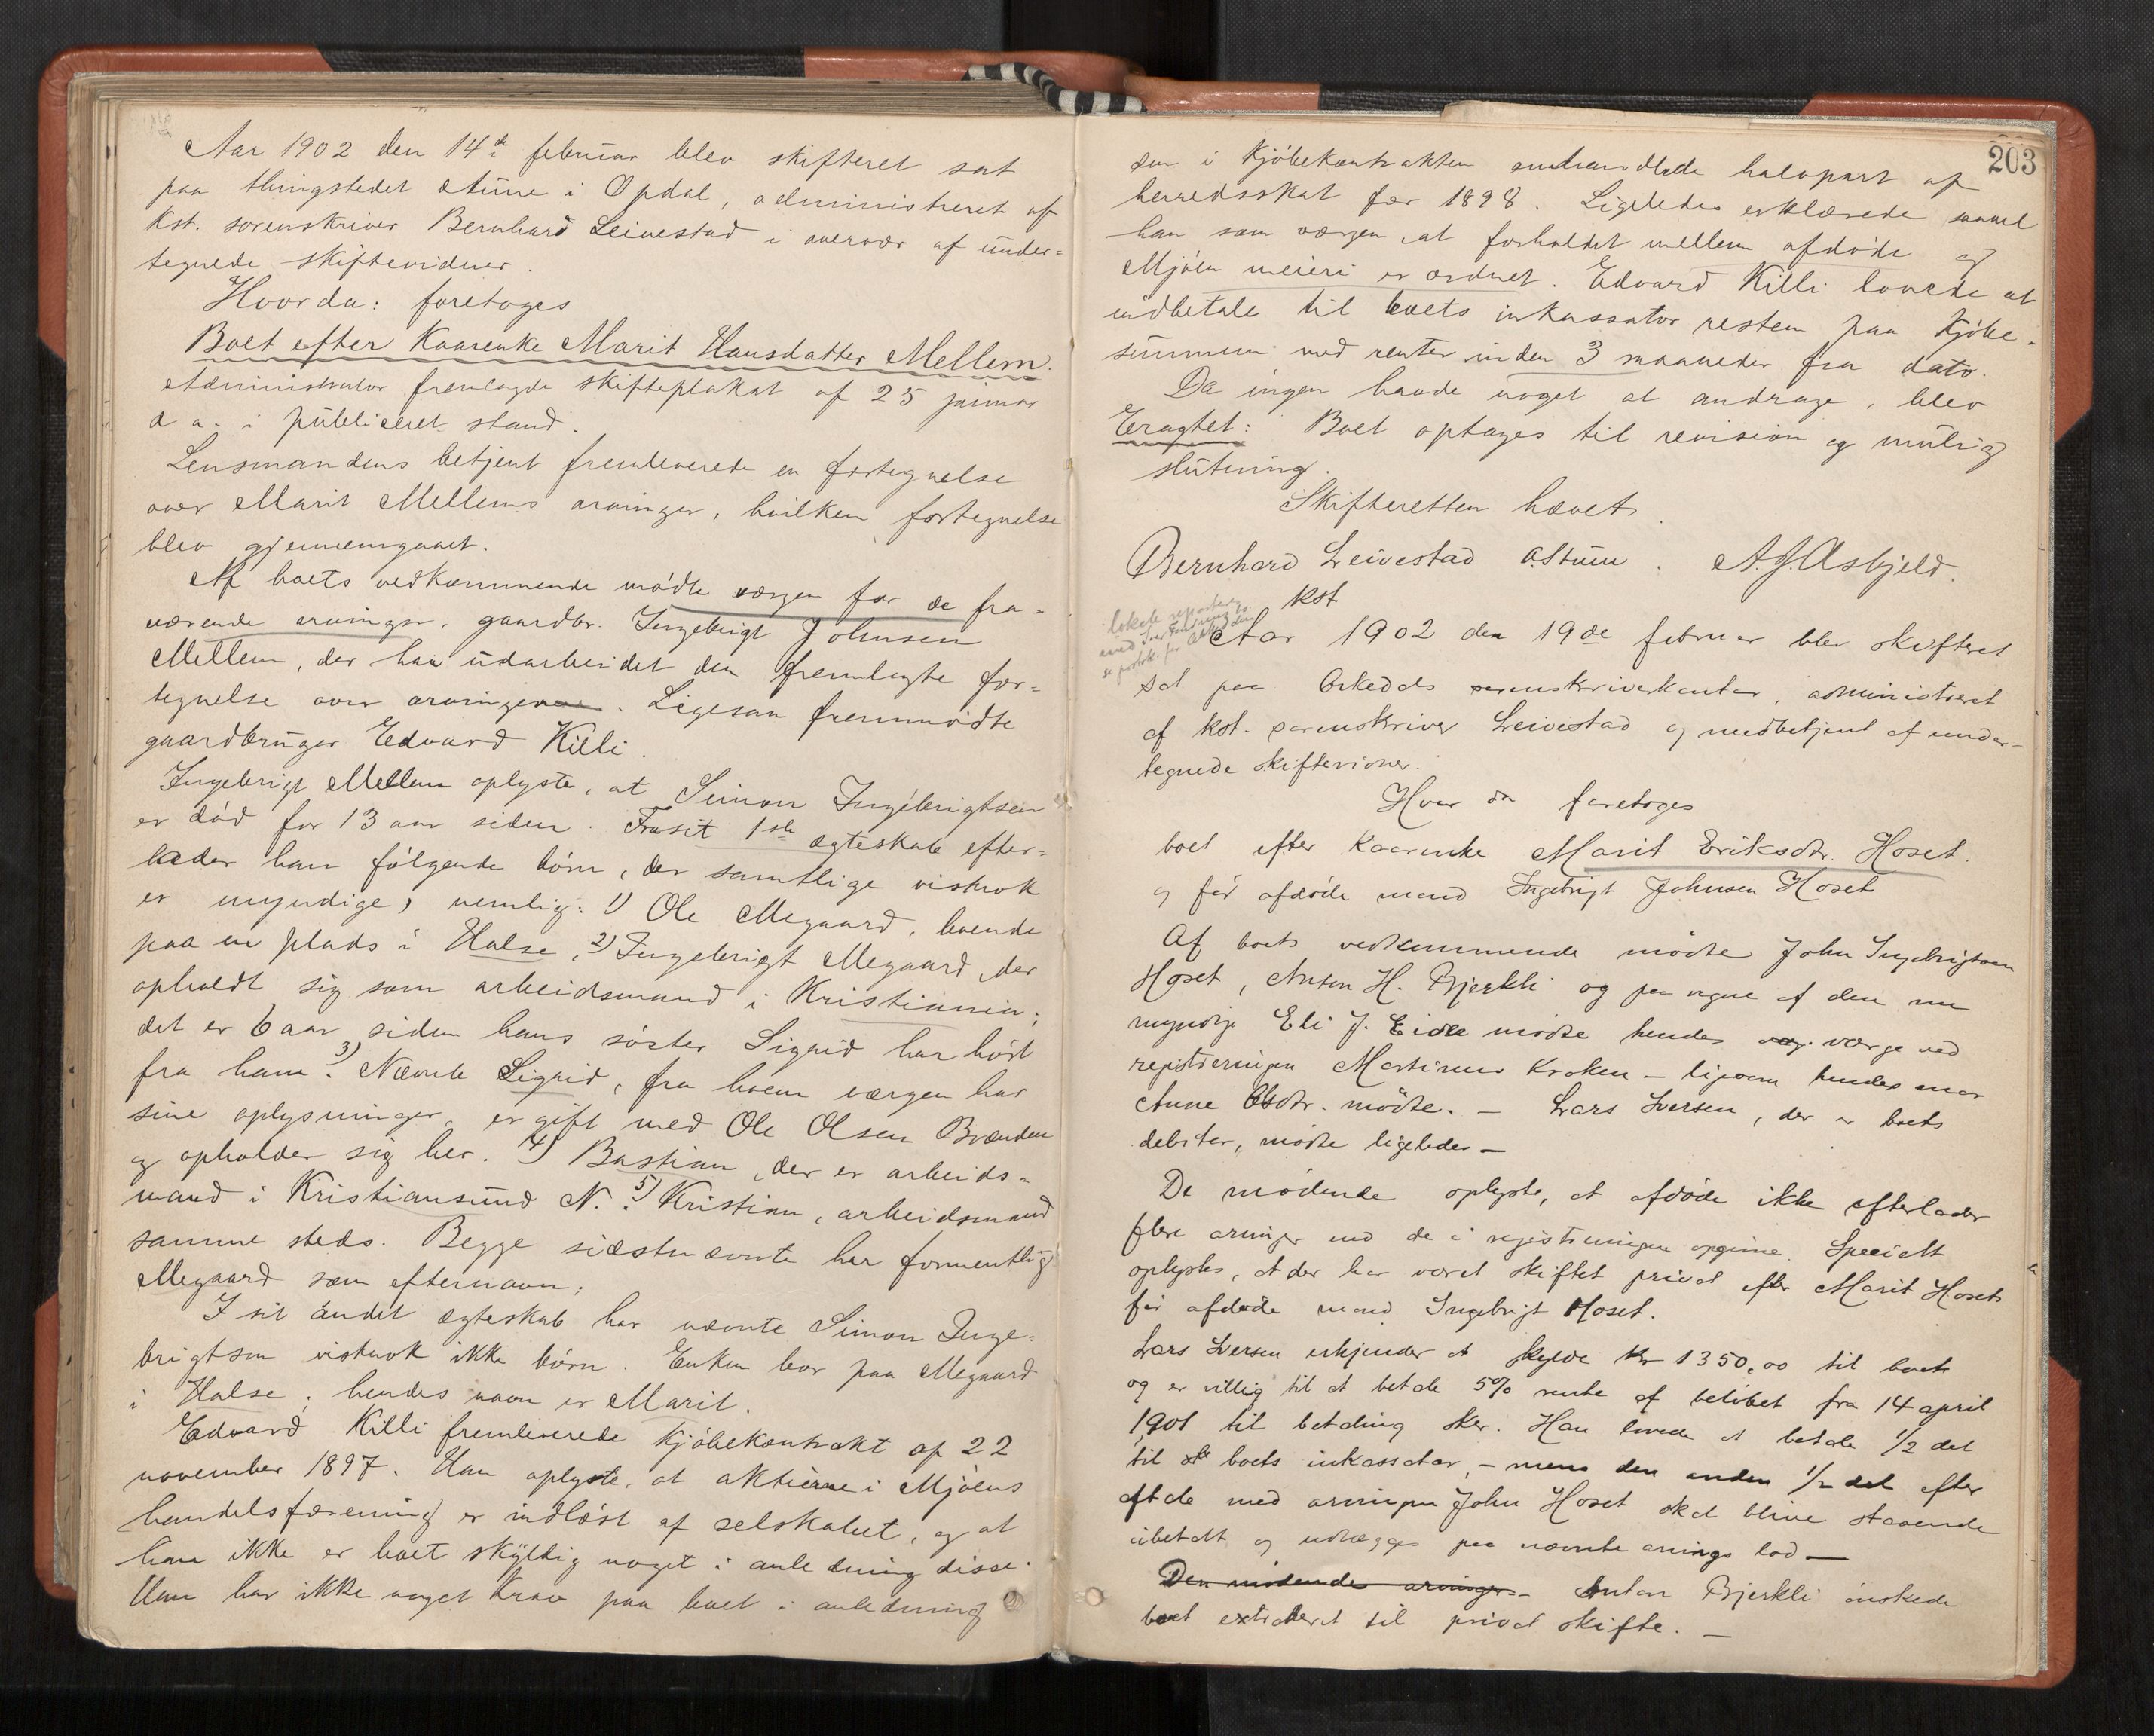 Aar 1902 den 14de februar blev skifteret sat
paa thingstedet Aune i Opdal, administreret af
kst. sorenskriver Bernhard Leivestad i overvær af under=
tegnede skiftevidner.
Hvorda: foretoges
Boet efter Kaarenke Marit Hansdatter Mellem.
Administrator fremlagde skifteplakat af 25 januar
d a. i publiceret stand.
Lensmandens betjent fremleverede en fortegnelse
over Marit Mellems arvinger, hvilken fortegnelse
blev gjennemgaaet.
Af boets vedkommende mødte værgen for de fra=
værende arvinger, gaardbr. Ingebrigt Johnsen
Mellem, der har udarbeidet den fremlagte for=
tegnelse over arvingerne. Ligesaa fremmødte
gaardbruger Edvard Killi.
Ingebrigt Mellem oplyste, at Simon Ingebrigtsen
er død for 13 aar siden. Fra sit 1ste ægteskab efter=
lader han følgende børn, der samtlige vistnok
er myndige, nemlig: 1) Ole Megaard, boende
paa en plads i Halse, 2) Ingebrigt Megaard, der
opholdt sig som arbeidsmand i Kristiania;
det er 6 aar siden hans søster Sigrid har hørt
fra ham. 3) Nævnte Sigrid, fra hvem værgen har
sine oplysninger, er gift med Ole Olsen Brænden
og opholder sig her. 4) Bastian, der er arbeids=
mand i Kristiansund N. 5) Kristian, arbeidsmand
samme steds. Begge sidstnævnte har formentlig
Megaard som efternavn.
I sit andet ægteskab har nævnte Simon Inge=
brigtsen vistnok ikke børn. Enken bor paa Megaard
i Halse; hendes navn er Marit.
Edvard Killi fremleverede kjøbekontrakt af 22
november 1897. Han oplyste, at aktierne i Mjøens
handelsforening er indløst af selskabet, og at
han ikke er boet skyldig noget i anledning disse.
Han har ikke noget krav paa boet i anledning
203
den i kjøbekontrakten omhandlede halvpart af
herredsskat for 1898. Ligeledes erklærede saavel
han som værgen, at forholdet mellem afdøde og
Mjøen meieri er ordnet. Edvard Killi lovede at
indbetale til boets inkassator resten paa kjøbe=
summen med renter inden 3 maaneder fra dato.
Da ingen havde noget at andrage, blev
Eragtet: Boet optages til revision og mulig
slutning.
Skifteretten hævet.
Bernhard Leivestad A Stuen. A. J. Asbjeld.
kst
Aar 1902 den 19de februar blev skifteret
sat paa Orkedals sorenskriverkontor, administreret
af kst. sorenskriver Leivestad og medbetjent af under-
tegnede skiftevidner.
Hvor da foretoges
boet efter kaarenke Marit Eriksdtr. Hoset.
og før afdøde mand Ingebrigt Johnsen Hoset
Af boets vedkommende mødte John Ingebrigtsen
Hoset, Anton H. Bjerkli og paa vegne af den nu
myndige Eli J. Eide mødte hendes værge ved
registreringen Martinus Kroken – ligesom hendes mor
Anne Olsdtr. mødte. – Lars Iversen, der er boets
debitor, mødte ligeledes –
De mødende oplyste, at afdøde ikke efterlader
flere arvinger end de i registreringen opgivne. Specielt
oplystes, at der har været skiftet privat efter Marit Hosets
før afdøde mand Ingebrigt Hoset.
Lars Iversen erkjender at skylde kr 1350,00 til boet
og er villig til at betale 5% rente af beløbet fra 14 april
1901 til betaling sker. Han lovede at betale 1/2 del
til boets inkassator, – mens den anden 1/2 del efter
aftale med arvingen John Hoset skal blive staaende
ubetalt og udlægges paa nævnte arvings lod –
Den mødende arvinger – Anton Bjerkli ønskede
boet extraderet til privat skifte. –